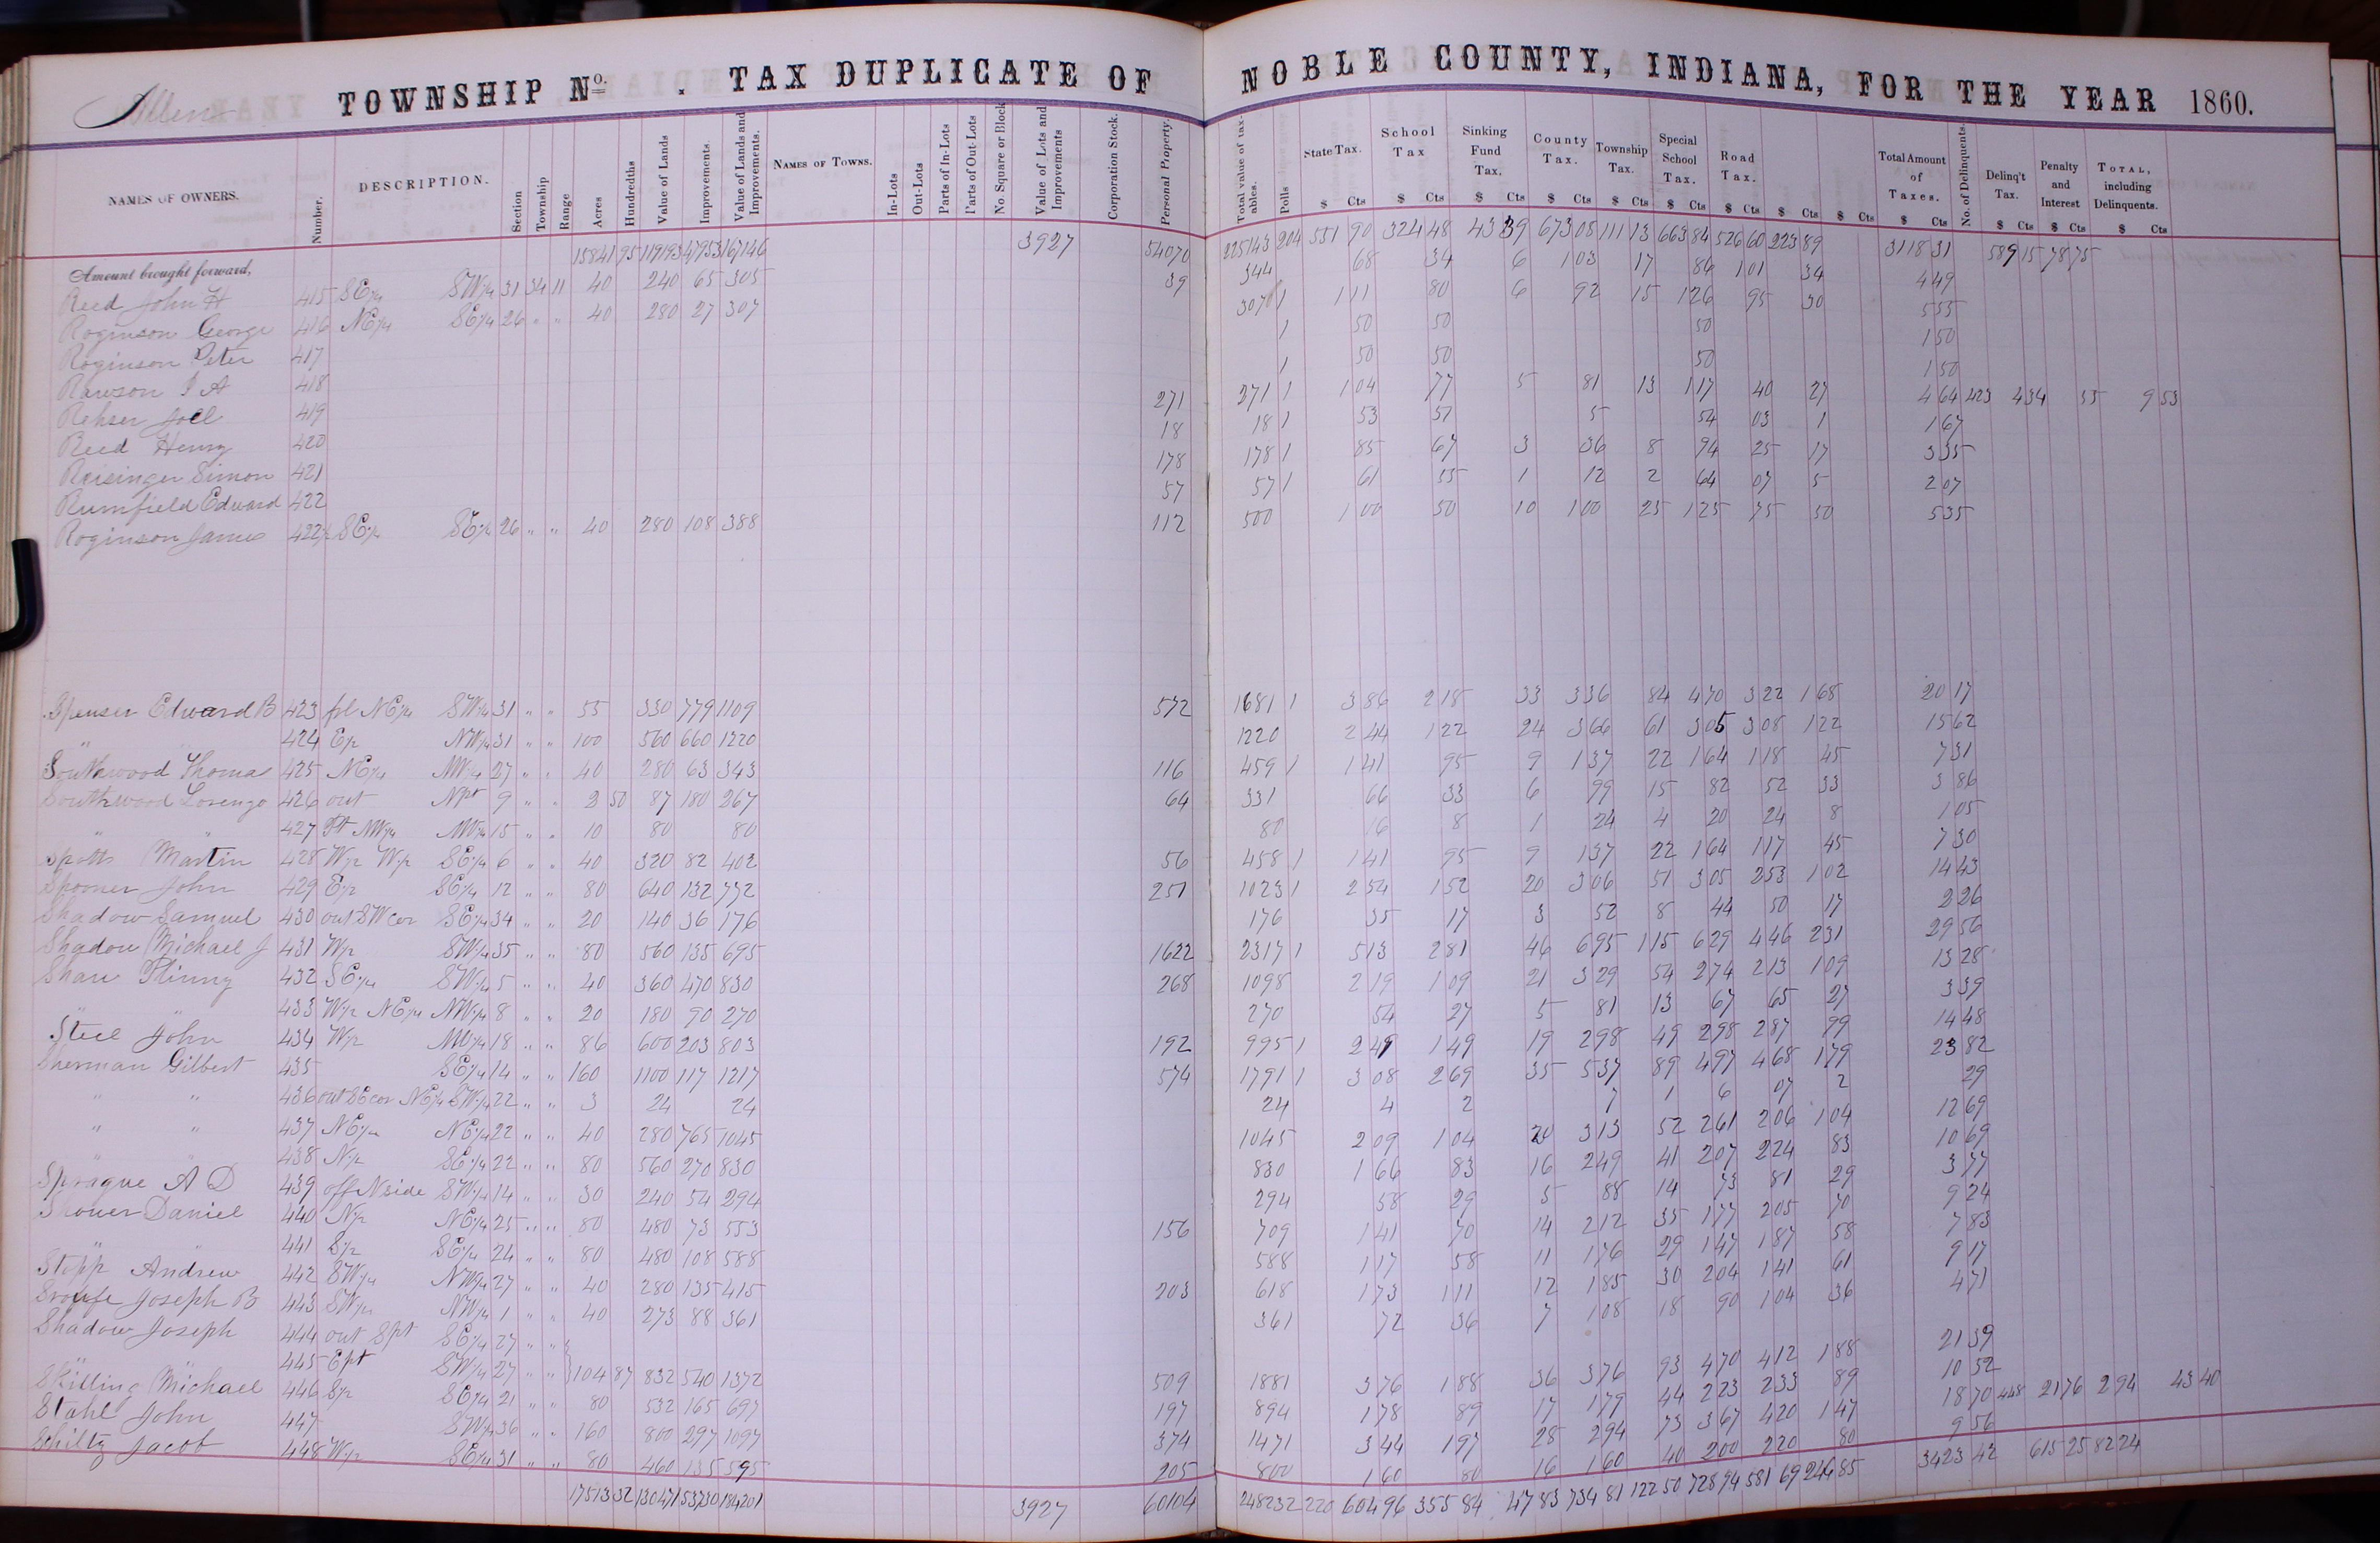 Allen TOWNSHIP No. . TAX DUPLICATE OF NOBLE COUNTY, INDIANA, FOR THE YEAR 1860.
NAMES OF OWNERS. Number. DESCRIPTION. Section Township Range Acres Hundredths Value of Lands Improvements. Value of Lands and Improvements. NAMES OF TOWNS. In-Lots Out-Lots Parts of In-Lots Parts of Out-Lots No. Square or Block Value of Lots and Improvements Corporation Stock. Personal Property. Total value of taxables. Polls State Tax. School Tax Sinking Fund Tax. County Tax. Township Tax. Special School Tax. Road Tax. Total Amount of Taxes. No. of Delinquents. Delinq't Tax. Penalty and Interest TOTAL, including Delinquents.
$ Cts $ Cts $ Cts $ Cts $ Cts $ Cts $ Cts $ Cts $ Cts $ Cts $ Cts $ Cts $ Cts
Amount brought forward, 15841 95 119193 47953 167146 3927 54070 225143 204 551 90 324 48 43 39 673 05 111 13 663 84 526 60 223 89 3118 31 589 15 78 75
Reed John H 415 SE¼ SW¼ 31 34 11 40 240 65 305 39 344 68 34 6 1 03 17 86 1 01 34 4 49
Roginson George 416 NE¼ SE¼ 26 " " 40 280 27 307 307 1 1 11 80 6 92 15 1 26 95 30 5 55
Roginson Peter 417 1 50 50 50 1 50
Rawson I A 418 1 50 50 50 1 50
Rehser Joel 419 271 271 1 1 04 77 5 81 13 1 17 40 27 4 64 423 4 34 55 9 53
Reed Henry 420 18 18 1 53 51 5 54 03 1 1 67
Reisinger Simon 421 178 178 1 85 67 3 36 8 94 25 17 3 35
Rumfield Edward 422 57 57 1 61 55 1 12 2 64 07 5 2 07
Roginson James 422½ SE¼ SE¼ 26 " " 40 280 108 388 112 500 1 00 50 10 1 00 25 1 25 75 50 5 35
Spenser Edward B 423 frl NE¼ SW¼ 31 " " 55 330 779 1109 572 1681 1 3 86 2 18 33 3 36 84 4 70 3 22 1 68 20 17
" 424 E½ NW¼ 31 " " 100 560 660 1220 1220 2 44 1 22 24 3 66 61 3 05 3 08 1 22 15 62
Southwood Thomas 425 NE¼ NW¼ 27 " " 40 280 63 343 116 459 1 1 41 95 9 1 37 22 1 64 1 18 45 7 31
Southwood Lorenzo 426 out Npt 9 " " 2 50 87 180 267 64 331 66 33 6 99 15 82 52 33 3 86
" " 427 Pt NW¼ NW¼ 15 " " 10 80 80 80 16 8 1 24 4 20 24 8 1 05
Spotts Martin 428 W½ W½ SE¼ 6 " " 40 320 82 402 56 458 1 1 41 95 9 1 37 22 1 64 1 17 45 7 30
Spooner John 429 E½ SE¼ 12 " " 80 640 132 772 251 1023 1 2 54 1 52 20 3 06 51 3 05 2 53 1 02 14 43
Shadow Samuel 430 out SW cor SE¼ 34 " " 20 140 36 176 176 35 17 3 52 8 44 50 17 2 26
Shadow Michael J 431 W½ SW¼ 35 " " 80 560 135 695 1622 2317 1 5 13 2 81 46 6 95 1 15 6 29 4 46 2 31 29 56
Shaw Plinny 432 SE¼ SW¼ 5 " " 40 360 470 830 268 1098 2 19 1 09 21 3 29 54 2 74 2 13 1 09 13 28
" " 433 W½ NE¼ NW¼ 8 " " 20 180 90 270 270 54 27 5 81 13 67 65 27 3 39
Steel John 434 W½ NW¼ 18 " " 86 600 203 803 192 995 1 2 49 1 49 19 2 98 49 2 98 2 87 99 14 48
Sherman Gilbert 435 SE¼ 14 " " 160 1100 117 1217 574 1791 1 3 08 2 69 35 5 37 89 4 97 4 68 1 79 23 82
" " 436 out SE cor NE¼ SW¼ 22 " " 3 24 24 24 4 2 7 1 6 07 2 29
" " 437 NE¼ NE¼ 22 " " 40 280 765 1045 1045 2 09 1 04 20 3 13 52 2 61 2 06 1 04 12 69
" " 438 N½ SE¼ 22 " " 80 560 270 830 830 1 66 83 16 2 49 41 2 07 2 24 83 10 69
Sprague A D 439 off N side SW¼ 14 " " 30 240 54 294 294 58 29 5 88 14 73 81 29 3 77
Shower Daniel 440 N½ NE¼ 25 " " 80 480 73 553 156 709 1 41 70 14 2 12 35 1 77 2 05 70 9 24
" " 441 S½ SE¼ 24 " " 80 480 108 588 588 1 17 58 11 1 76 29 1 47 1 87 58 7 83
Stopp Andrew 442 SW¼ NW¼ 27 " " 40 280 135 415 203 618 1 73 1 11 12 1 85 30 2 04 1 41 61 9 17
Sroufe Joseph B 443 SW¼ NW¼ 1 " " 40 273 88 361 361 72 36 7 1 08 18 90 1 04 36 4 71
Shadow Joseph 444 out Spt SE¼ 27 " "
" " 445 Ept SW¼ 27 " " 104 87 832 540 1372 509 1881 3 76 1 88 36 3 76 93 4 70 4 12 1 88 21 39
Skilling Michael 446 S½ SE¼ 21 " " 80 532 165 697 197 894 1 78 89 17 1 79 44 2 23 2 33 89 10 32
Stahl John 447 SW¼ 36 " " 160 800 297 1097 374 1471 3 44 1 97 28 2 94 73 3 67 4 20 1 47 18 70 448 21 76 2 94 43 40
Shiltz Jacob 448 W½ SE¼ 31 " " 80 460 135 595 205 800 1 60 80 16 1 60 40 2 00 2 20 80 9 56
17513 32 130471 53730 184201 3927 60104 248232 220 604 96 355 84 47 83 734 81 122 50 728 94 581 69 246 85 3423 42 615 25 82 24